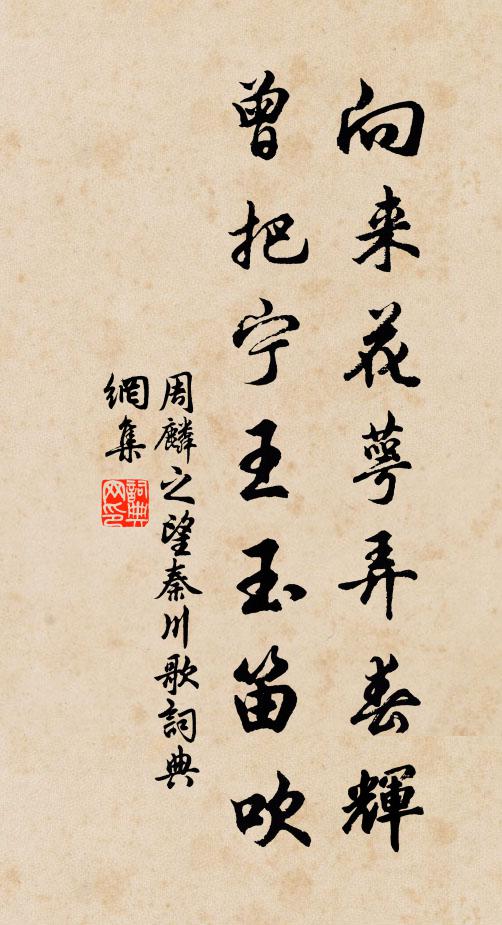 向来花萼弄春輝
曾把宁王玉笛吹
周麟之望秦川歌詞典
網集
詞典
网印